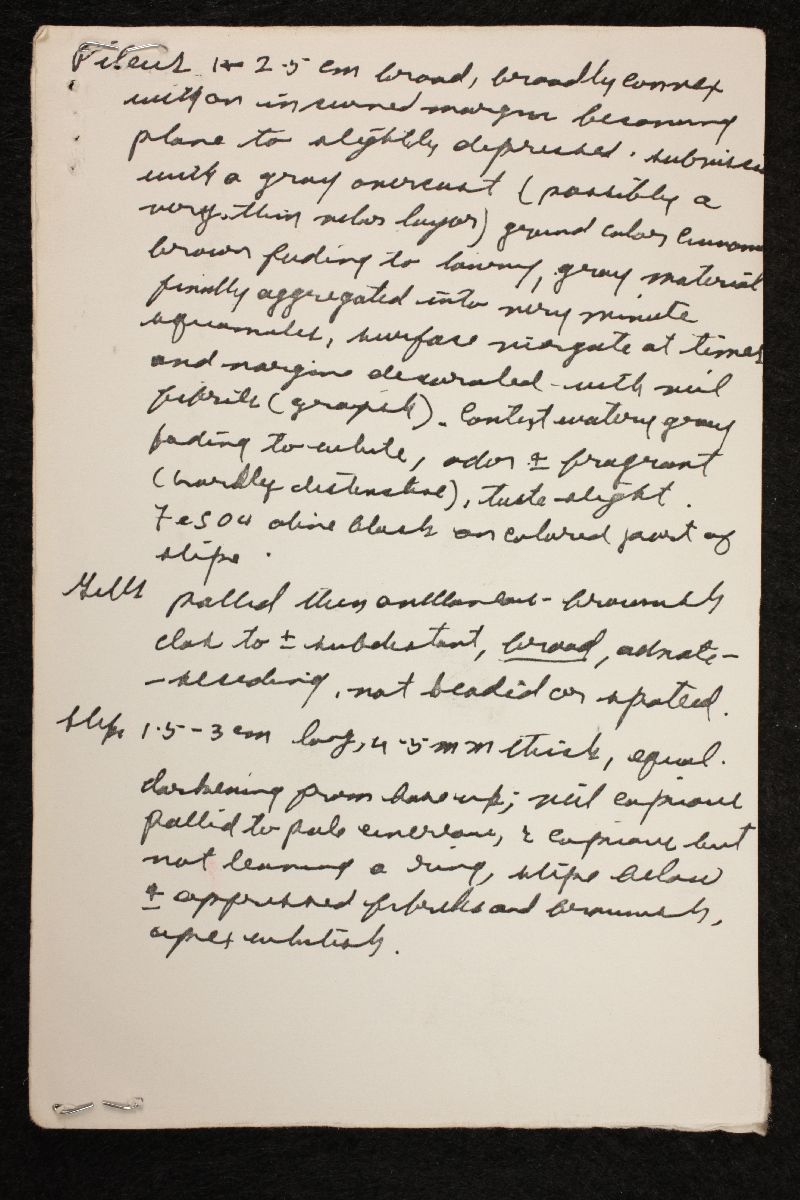 Pileus 1-2.5 cm broad, broadly convex
with an incurved margin becoming
plane to slightly depressed.
with a gray overcast (possibly a
very thin layer) ground color
brown fading to tawny, gray material
finally aggregated into very minute
squamules, surface virgate at times
and margine decorated with veil
fibrils (grayish). Context watery gray
fading to white, odor ± fragrant
(hardly distinctive), taste slight.
FeSO4 olive black on colored part of
stipe.
Gills pallid then avellaneous-brownish
close to ± subdistant, broad, adnate-
-seceding, not beaded or spotted.
Stipe 1.5-3 cm long, 4-5 mm thick, equal.
darkening from base up; veil copious
pallid to pale cinereous, & copious but
not leaving a ring, stipe below
± appressed fibrils and brownish,
apex whitish.